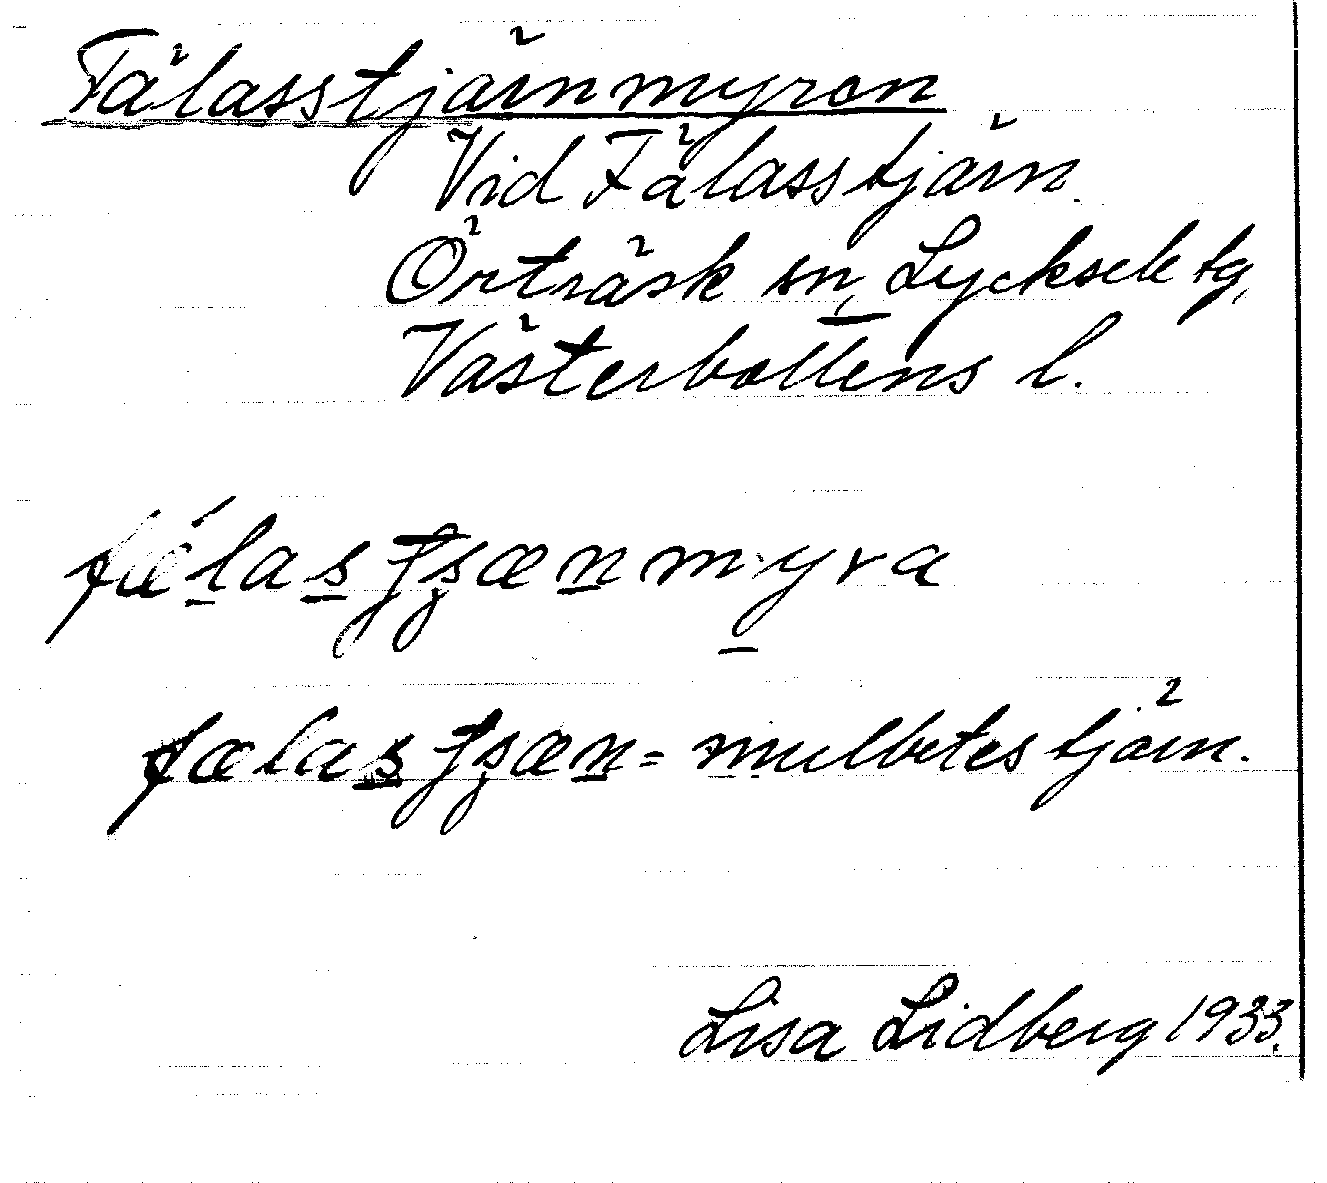 Fälasstjärnmyren
Vid Fälasstjärn.
Örträsk sn, Lycksele tg,
Västerbottens l.
fælas tjsænmyra
fælas tjsæn = mulbetestjärn.
Lisa Lidberg 1933.